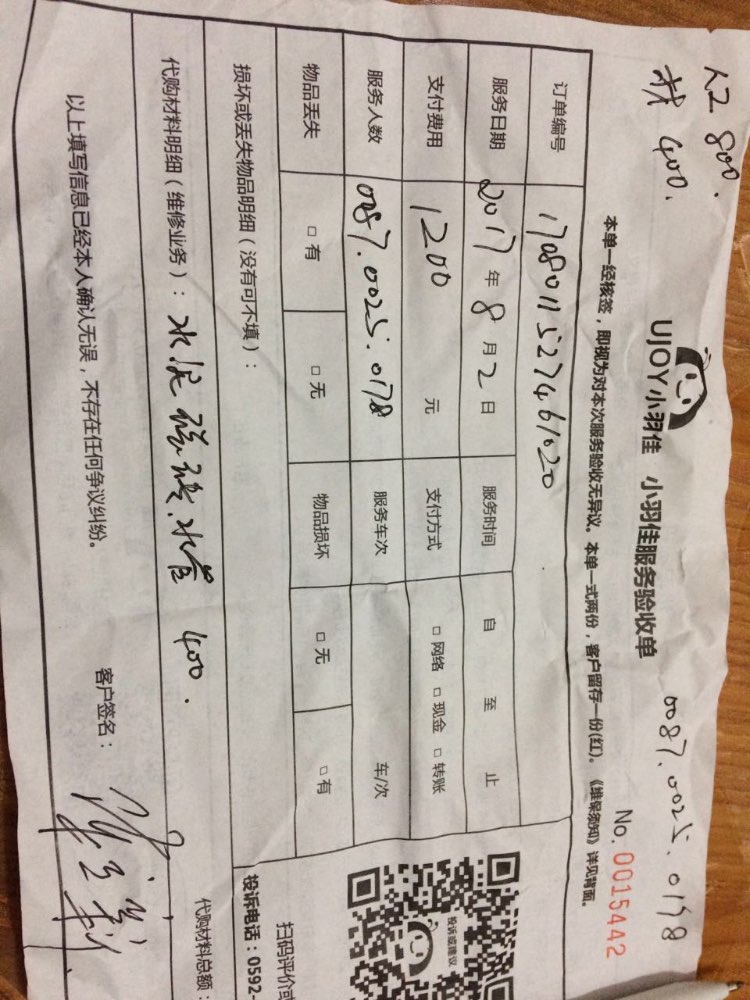 人工 800.
材 400.
UJOY小羽佳 小羽佳服务验收单
0087.0025.0178
No. 0015442
本单一经核签，即视为对本次服务验收无异议。本单一式两份，客户留存一份(红)。《维保须知》详见背面。
订单编号 1708011527461020
服务日期 2017 年 8 月 2 日 服务时间 自 至 止
支付费用 1200 元 支付方式 □ 网络 □ 现金 □ 转账
服务人数 0087.0025.0178 服务车次 车/次
物品丢失 □ 有 □ 无 物品损坏 □ 无 □ 有
损坏或丢失物品明细（没有可不填）：
代购材料明细（维修业务）：水泥 瓷砖.水管 400.
代购材料总额：
以上填写信息已经本人确认无误，不存在任何争议纠纷。
客户签名：
投诉或建议
扫码评价或
投诉电话：0592-